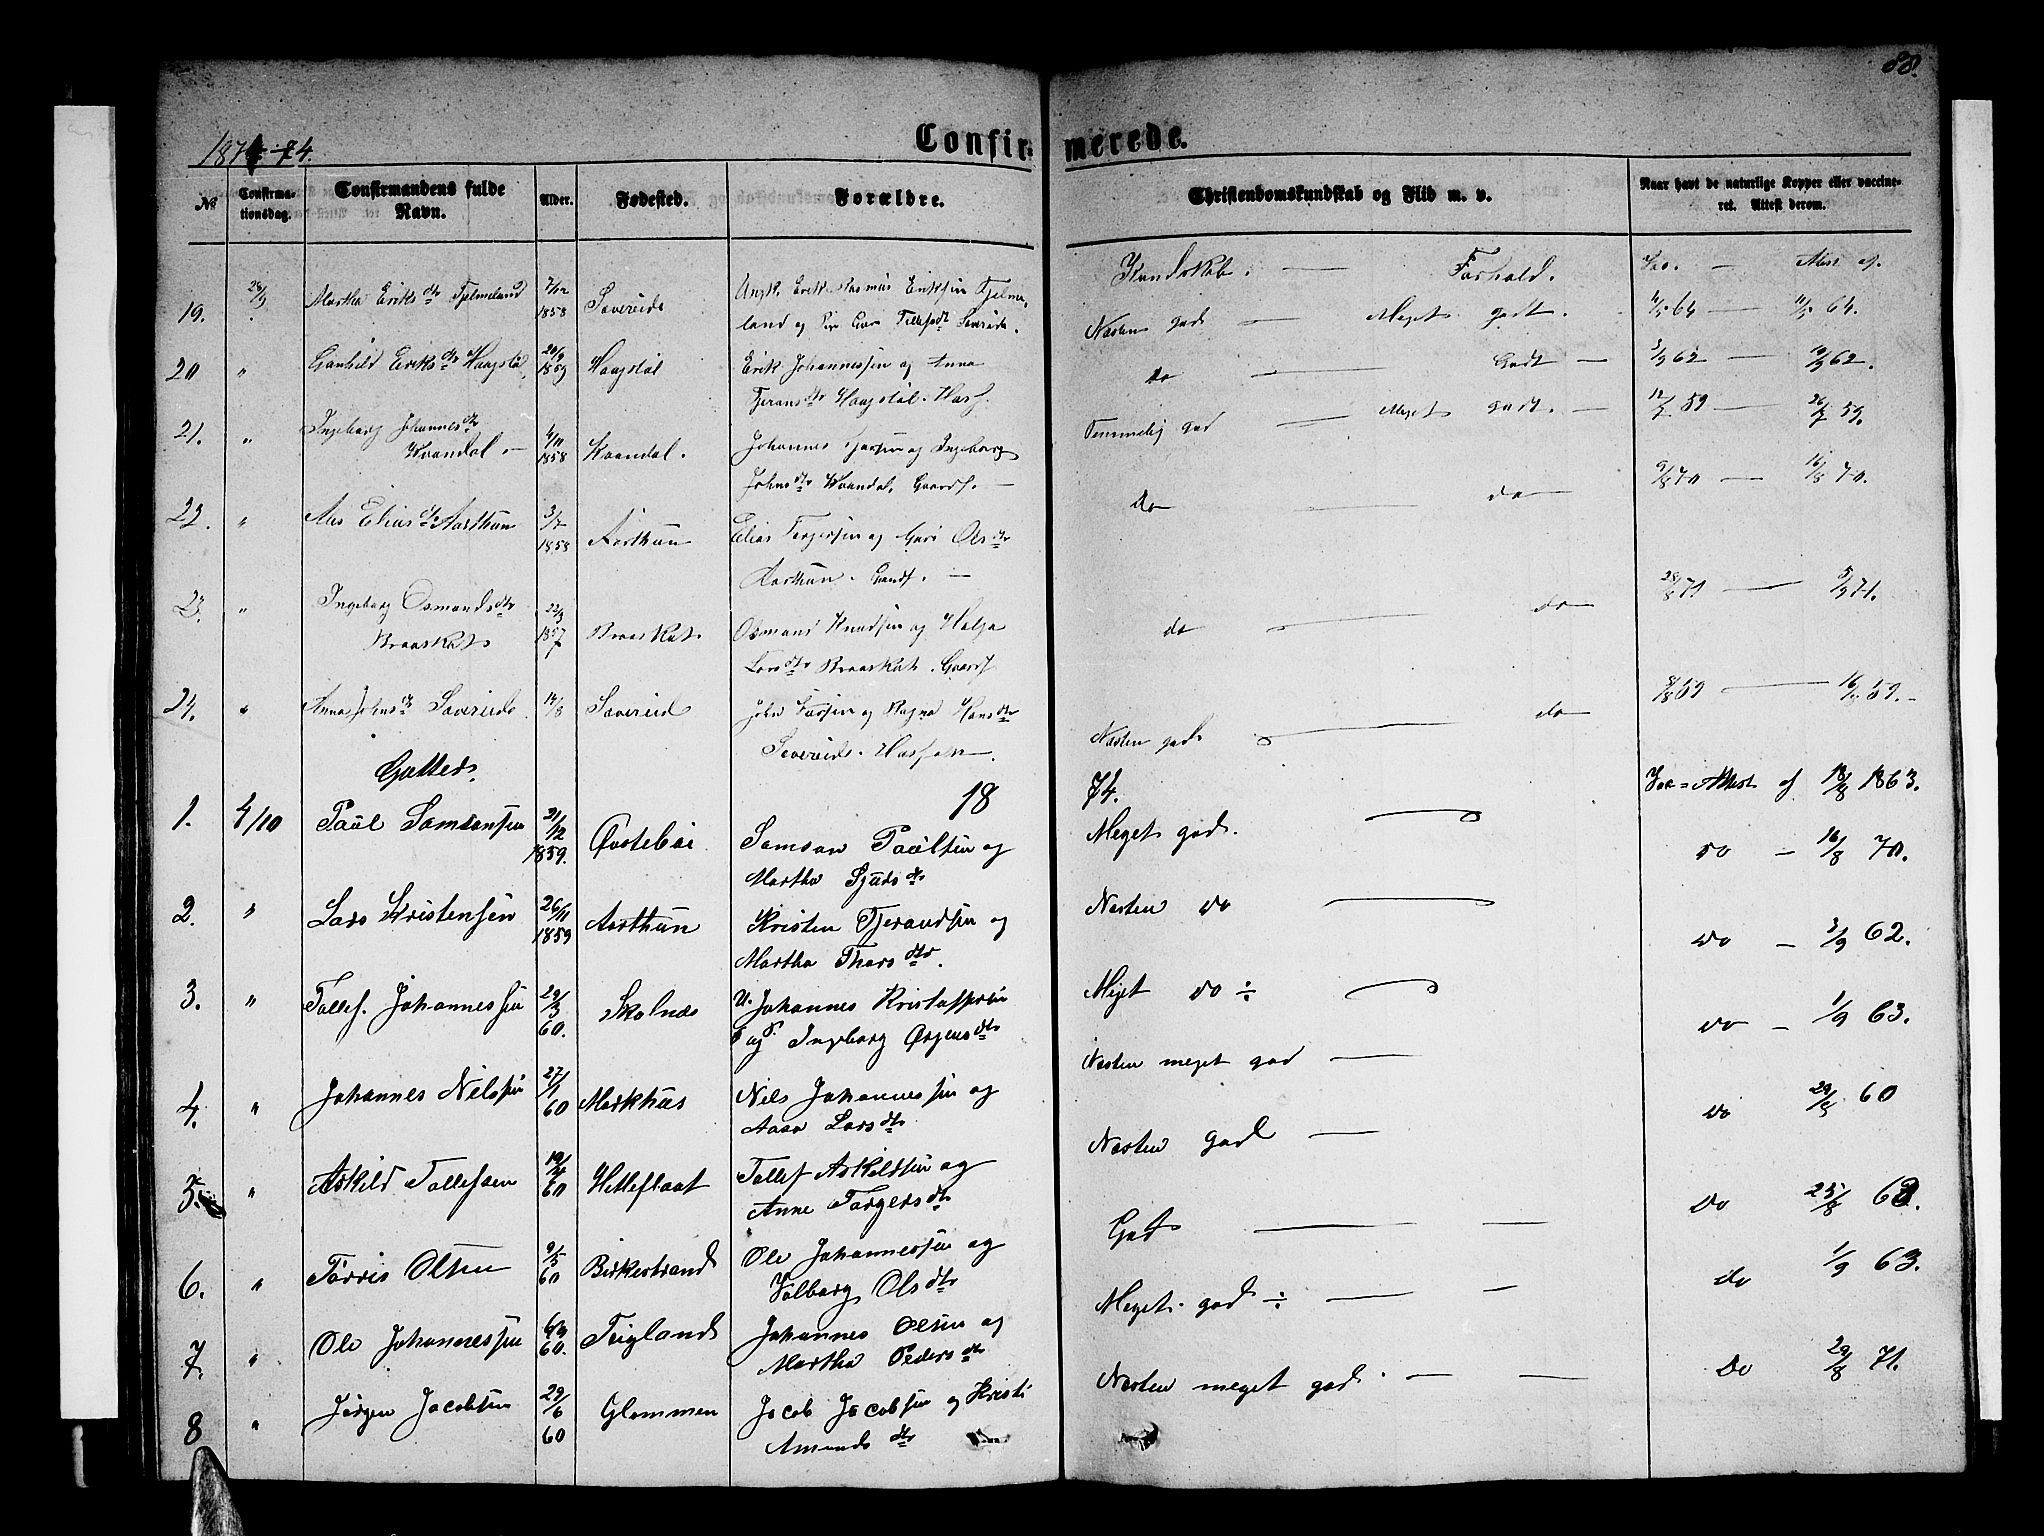 88.
187 -74.
Confirmerede.
№
Confirmationsdag.
Confirmandens fulde Navn.
Alder.
Fødested.
Forældre.
Christendomskundskab og Flid m. v.
Naar havt de naturlige Kopper eller vaccineret. Attest derom.
Kundskab. — Forhold.
19. 28/9 Martha Eriksdtr Fjelmeland 7/12 1858 Sævereide
Ungk. Erik Rasmus Eriksen Fjelmeland og Pige
Næsten god — Meget godt. 4/5 64 — 11/5 64.
20 " Gunhild Eriksdtr Haagstøl 20/9 1859 Haagstøl
Erik Johannessen og Anna
Tjeransdtr Haagstøl. Husf.
do — Godt — 3/9 62 — 10/9 62.
21. " Ingeborg Johannesdtr
Kvandal. — 4/11 1858 Kvandal.
Johannes Larsen og Ingeborg
Johnsdtr Kvandal. Gaardf. —
Temmelig god — Meget godt. — 59 — 59.
22. " Eliasdtr Aarthun 3/7 1858 Aarthun
Elias Torgersen og Guri Olsdtr
Aarthun. Gaardf. —
do — do — 9/8 70 — 16/8 70.
23. " Ingeborg Osmundsdtr
Braaskat 22/3 1857 Braaskat
Osmund Knudsen og Helga
Larsdtr Braaskat. Gaardf
do — do — 28/8 71 — 5/9 71.
24. " Anna Johnsdtr Sævereide 14/8 Sævereid
John Larsen og Ragna Hansdtr
Severeide. Husfolk
Næsten god. — do — 8/8 59 — 59.
Gutter.
18 74.
Vac = Attest af 18/8 1863.
1. 4/10 Paul Samsonsen 21/12 1859. Øvstebøe
Samson Paulsen og
Martha Sjursdtr
Meget god. — do — 16/8 70.
2. " Lars Kristensen 26/11 1859 Aarthun
Kristen Tjerandsen og
Martha Thorsdtr.
Næsten do — do — 3/9 62.
3. " Tollef Johannessen 29/3 60. Skolnæs
U. Johannes Kristoffersen
og P. Ingeborg Ørjensdtr
Meget do ÷ — do — 1/9 63.
4. " Johannes Nilssen 27/1 60 Markhus
Nils Johannessen og
Aasa Larsdtr
Næsten meget god — do 29/8 60
5. " Askild Tollefsen 19/4 60 Hetleflaat
Tollef Askildsen og
Anne Torgersdtr
Næsten god — do 25/8 62.
6. " Tørris Olsen 9/5 60 Birkestrand
Ole Johannessen og
Valborg Olsdtr
God — do 1/9 63.
7. " Ole Johannessen 6/3 60. Teigland
Johannes Olsen og
Martha Pedersdtr
Meget god ÷ — do 29/8 71.
8 " Jørgen Jacobsen 29/6 60 Glommen
Jacob Jacobsen og Kristi
Amundsdtr
Næsten meget god. —